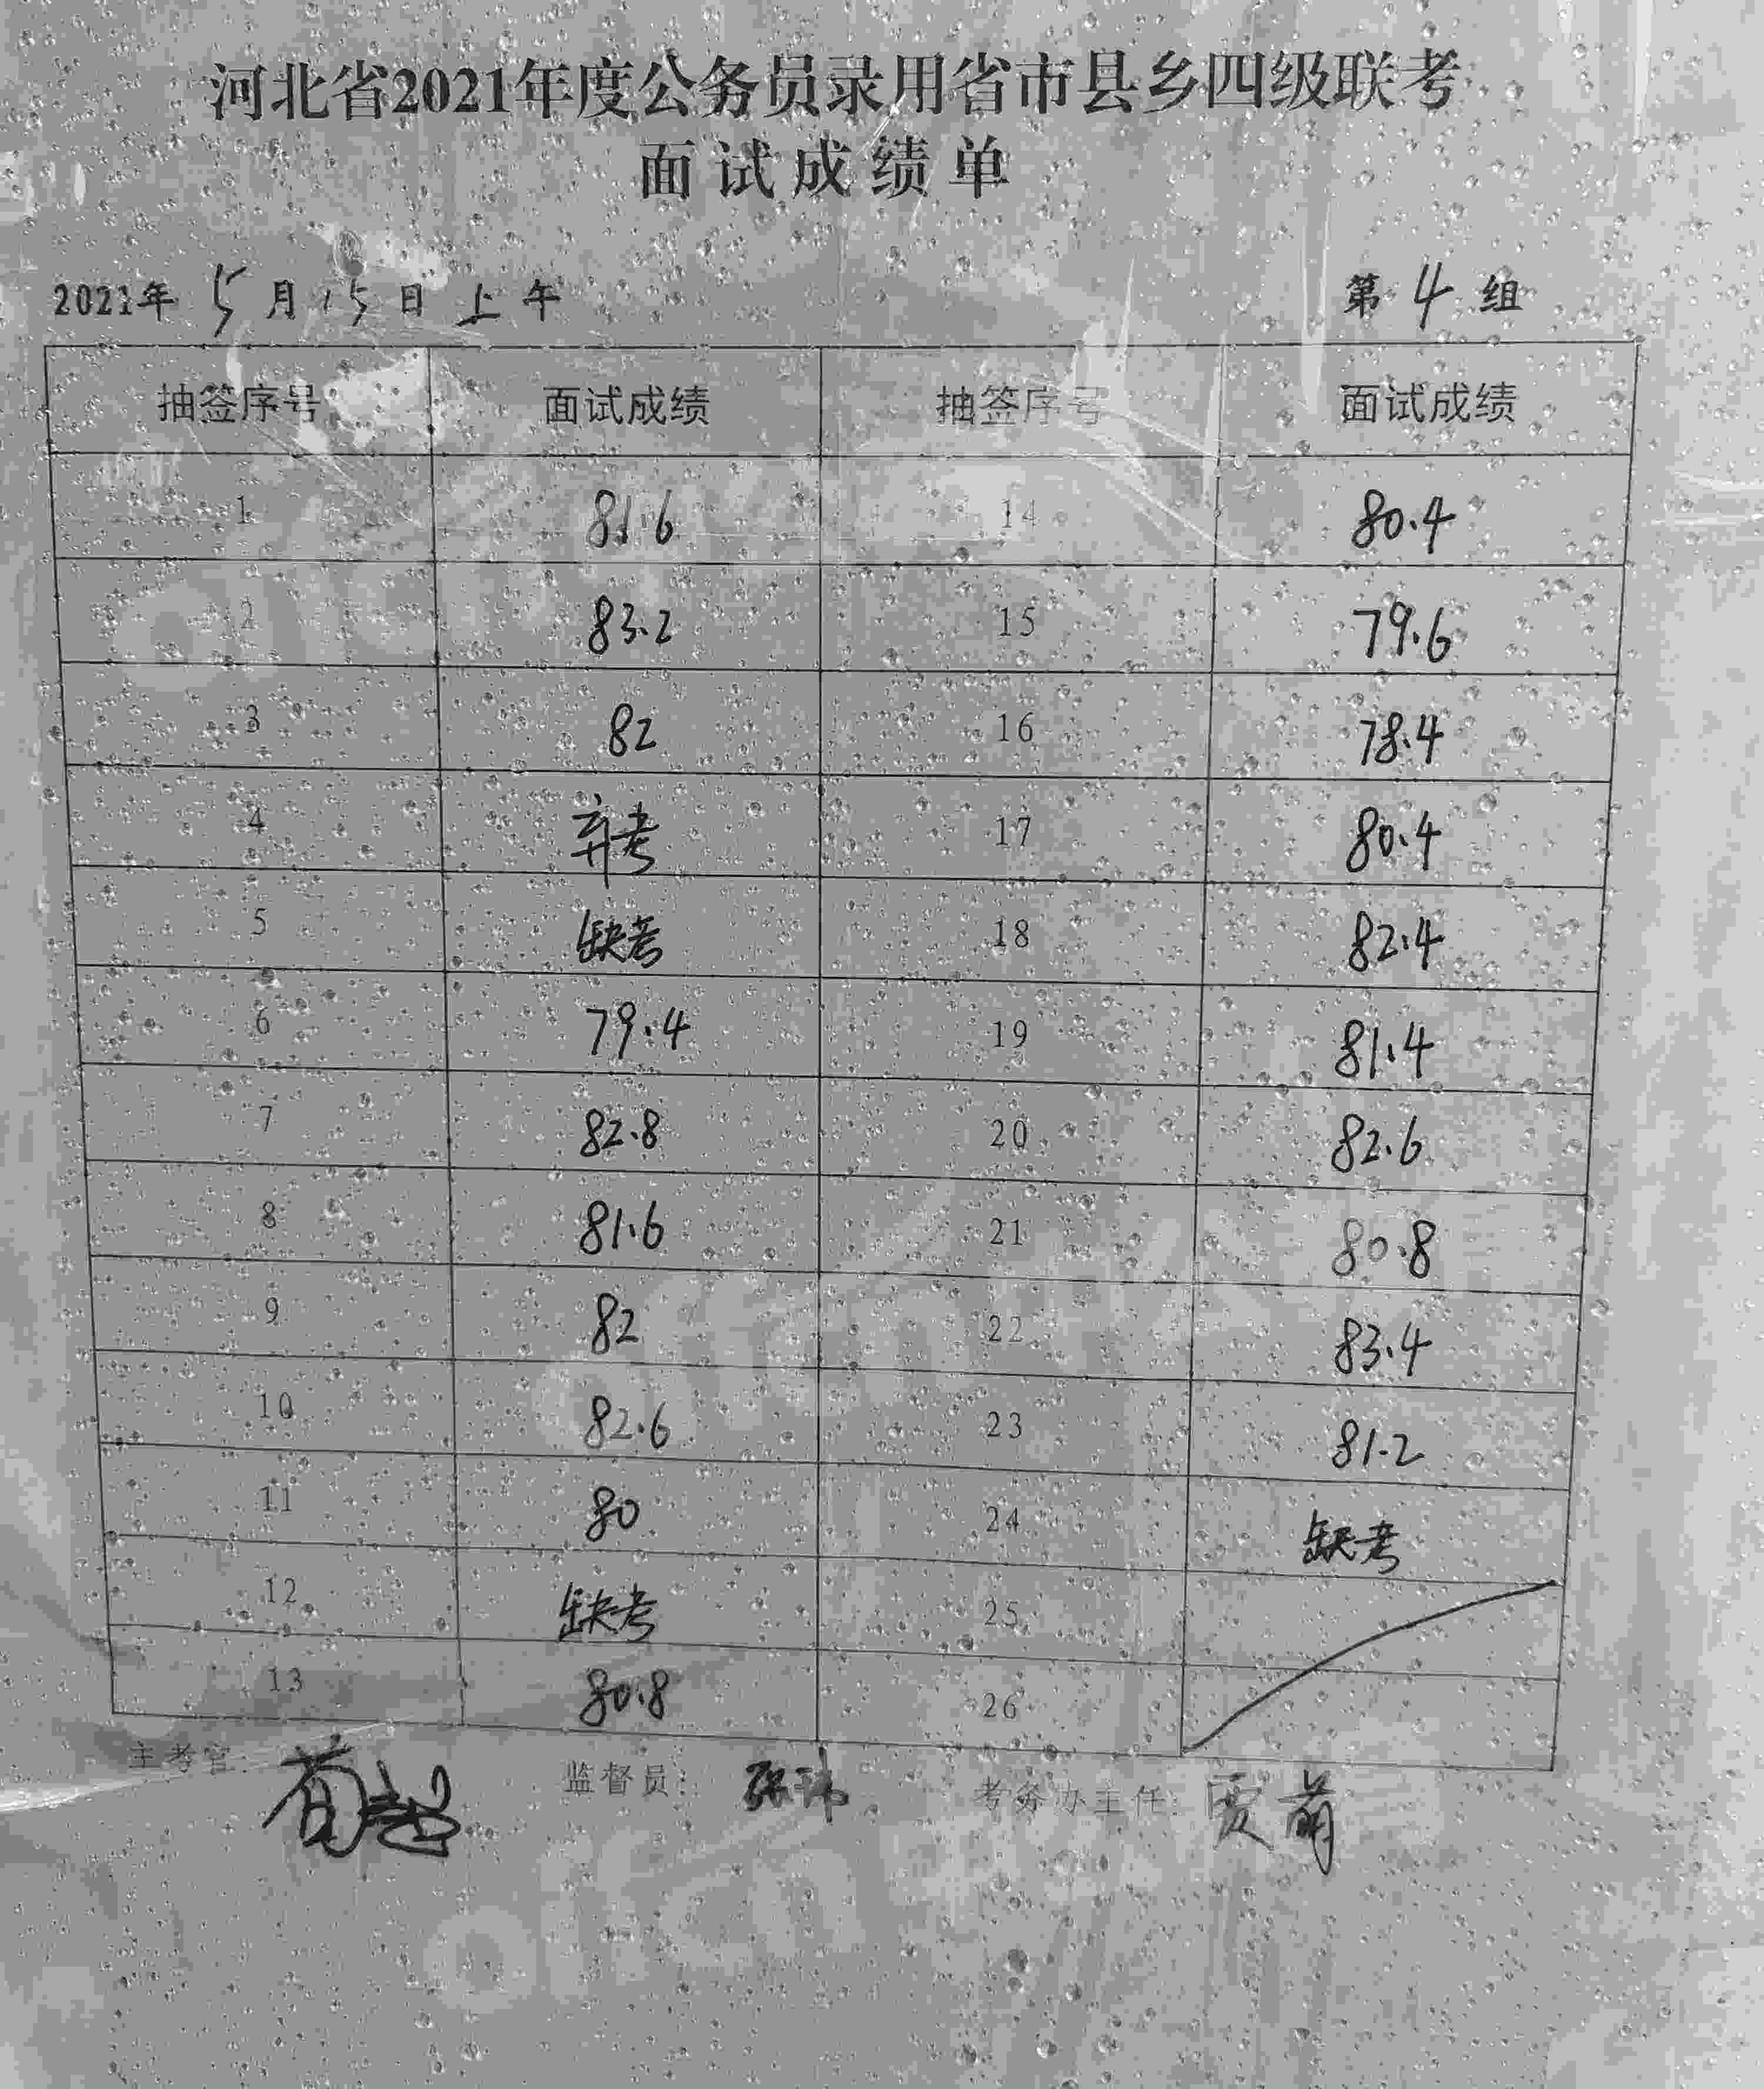 河北省2021年度公务员录用省市县乡四级联考
面试成绩单
2021年 5月15日 上午 第4组
抽签序号 面试成绩 抽签序号 面试成绩
1 81.6 14 80.4
2 83.2 15 79.6
3 82 16 78.4
4 弃考 17 80.4
5 缺考 18 82.4
6 79.4 19 81.4
7 82.8 20 82.6
8 81.6 21 80.8
9 82 22 83.4
10 82.6 23 81.2
11 80 24 缺考
12 缺考 25
13 80.8 26
主考官: 监督员: 张玮 考务办主任: 贾萌